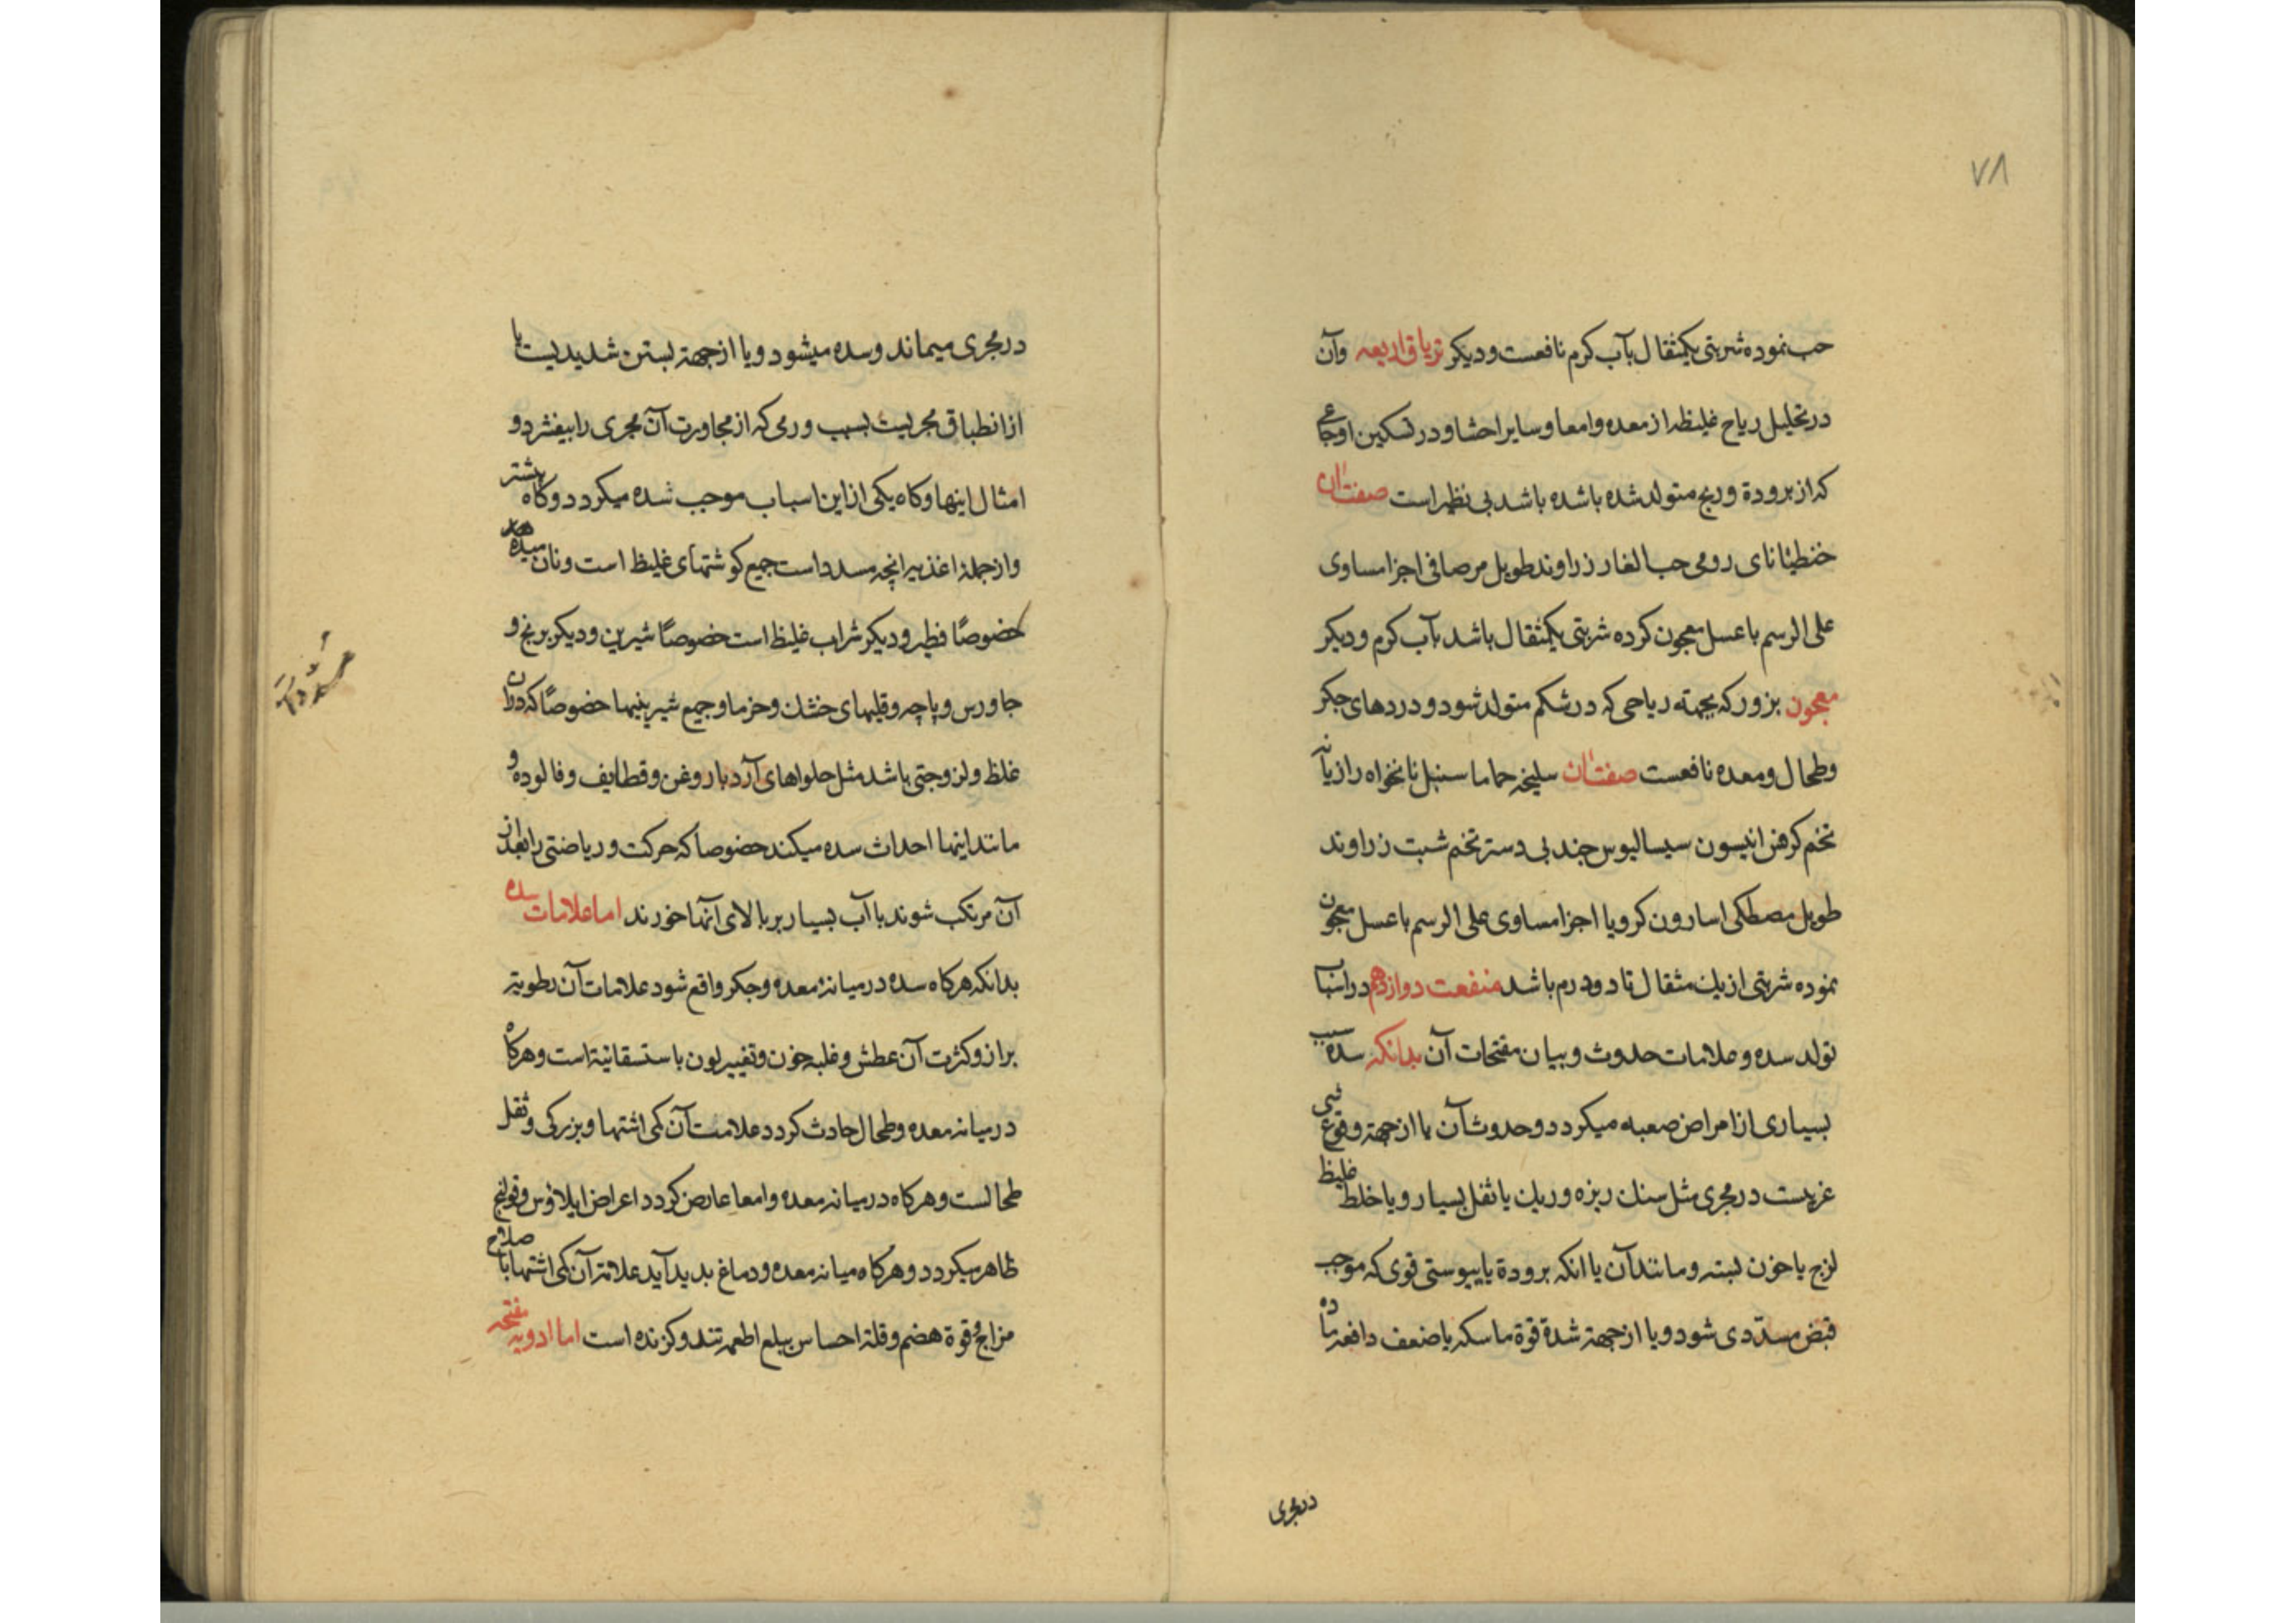 ۷۸
حب نموده شربتی یکمثقال بآب کرم نافعست و دیکر تریاق اربعه وآن
در تحلیل ریاح غلیظه از معده وامعا وسایر احشا ودر تسکین اوجاعی
که از برودة وریح متولد شده باشده باشد بی نظیر است صفت آن
جنطیانای رومی حب الغار زراوند طویل مر صافی اجزا مساوی
علی الرسم باعسل معجون کرده شربتی یکمثقال باشد بآب کرم ودیکر
معجون بزور که بجهته ریاحی که در شکم متولد شود ودردهای جکر
وطحال ومعده نافعست صفت آن سلیخه حماما سنبل نانخواه رازیانه
تخم کرفس انیسون سیسالیوس جند بی دستر تخم شبت زراوند
طویل مصطکی اسارون کرویا اجزا مساوی علی الرسم باعسل معجون
نموده شربتی از یک مثقال تا دودرم باشد منفعت دوازدهم در اسباب
تولد سده وعلامات حدوث وبیان مفتحات آن بدانکه سده سبب
بسیاری از امراض صعبه میکردد وحدوث آن یا از جهته وقوع شی
غریبست در مجری مثل سنک ریزه وریک یا ثفل بسیار ویا خلط غلیظ
لزج یا خون بسته ومانند آن یا انکه برودة یا یبوستی قوی که موجب
قبض مسددی شود ویا از جهته شدة قوة ماسکه یا ضعف دافعه ماده
در مجری
در مجری میماند وسده میشود ویا از جهته بستن شدیدیست یا
از انطباق مجریست بسبب ورمی که از مجاورت آن مجری را بیفشرد و
امثال اینها وکاه یکی از این اسباب موجب سده میکردد وکاه بیشتر
واز جملهٔ اغذیه انچه مسدد است جمیع کوشتهای غلیظ است ونان میده
خصوصًا فطیر ودیکر شراب غلیظ است خصوصًا شیرین ودیکر برنج و
جاورس وپاچه وقلیهای خشک وخرما وجمیع شیرینیها خصوصًا که دران
غلظ ولزوجتی باشد مثل حلواهای آرد بار وغن وقطایف وفالوده و
مانند اینها احداث سده میکند خصوصا که حرکت وریاضتی را بعد از
آن مرتکب شوند یا آب بسیار بر بالای آنها خورند اما علامات سده
بدانکه هرکاه سده در میانهٔ معده وجکر واقع شود علامات آن رطوبته
براز وکثرت آن عطش وغلبه خون وتغییر لون باستسقائیة است وهرکاه
در میانه معده وطحال حادث کردد علامت آن کمی اشتها وبزرکی وثقل
طحالست وهرکاه در میانه معده وامعا عارض کردد اعراض ایلاوس وقولنج
ظاهر میکردد وهرکاه میانه معده ودماغ بدید آید علامته آن کمی اشتها با صلاح
مزاج وقوة هضم وقلة احساس ببلع اطعمه تند وکزنده است اما ادویه مفتحه